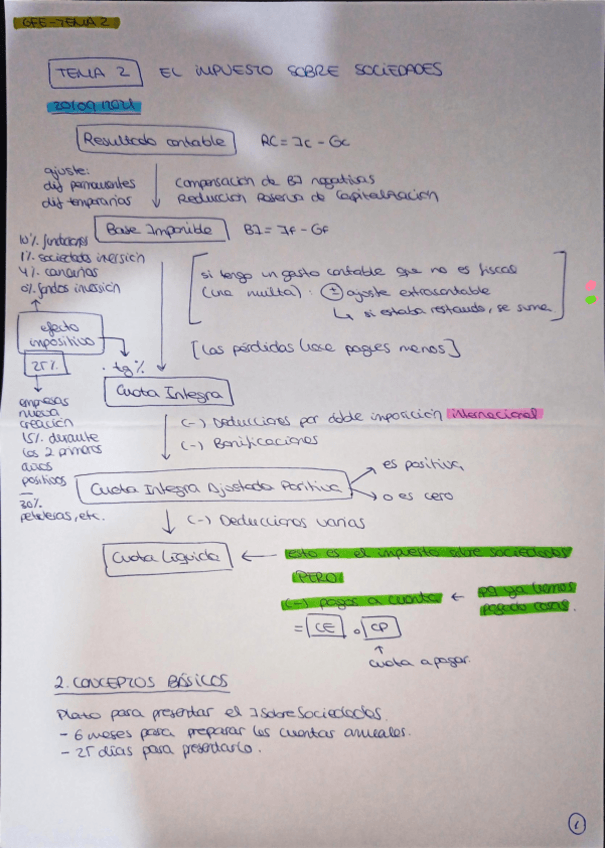 GFE-TEMA 2
TEMA 2 EL IMPUESTO SOBRE SOCIEDADES
20/09/2021
Resultado contable RC = Ic - Gc
ajuste:
dif permanentes
dif temporarias
Compensación de BI negativas
Reducción Reserva de Capitalización
Base Imponible BI = If - Gf
10% fundaciones
1% sociedades inversión
4% canarias
0% fondos inversión
si tengo un gasto contable que no es fiscal
(una multa): ± ajuste extracontable
↳ si estaba restando, se suma
efecto
impositivo
25%
[Las pérdidas hace pagues menos]
. tg%
Cuota Integra
empresas
nueva
creación
15% durante
los 2 primeros
años
positivos
30%
petroleras, etc.
(-) Deducciones por doble imposición internacional
(-) Bonificaciones
Cuota Integra Ajustada Positiva
es positiva,
o es cero
(-) Deducciones varias
Cuota Líquida ← esto es el impuesto sobre sociedades
PERO
(-) pagos a cuenta ← pq ya hemos
pagado cosas.
= CE o CP
↑
cuota a pagar.
2. CONCEPTOS BÁSICOS
Plazo para presentar el I sobre Sociedades.
- 6 meses para preparar las cuentas anuales.
- 25 días para presentarlo.
1